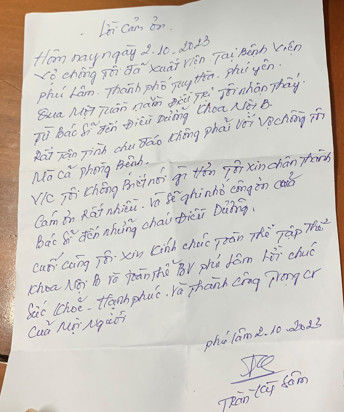 Lời Cảm Ơn.
Hôm nay ngày 2.10.2023
Vợ chồng tôi đã xuất viện Tại Bệnh viện
phú Lâm. Thành phố Tuy Hòa. phú yên.
Qua Một Tuần nằm Điều Trị Tôi nhận thấy.
Từ Bác Sĩ đến Điều Dưỡng Khoa Nội B.
Rất Tận Tình chu đáo không phải với vợ chồng tôi
Mà cả phòng Bệnh.
V/C Tôi không Biết nói gì Hơn Tôi xin chân Thành
Cảm ơn Rất nhiều. Và sẽ ghi nhớ công ơn của
Bác Sĩ đến những cháu Điều Dưỡng.
Cuối cùng Tôi. Xin Kính chúc Toàn Thể Tập Thể
Khoa Nội B và Toàn Thể BV phú Lâm Lời chúc
Sức Khoẻ - Hạnh phúc. Và Thành Công Trong CV
Của Mọi Người
phú Lâm 2.10.2023
Trần Lâm